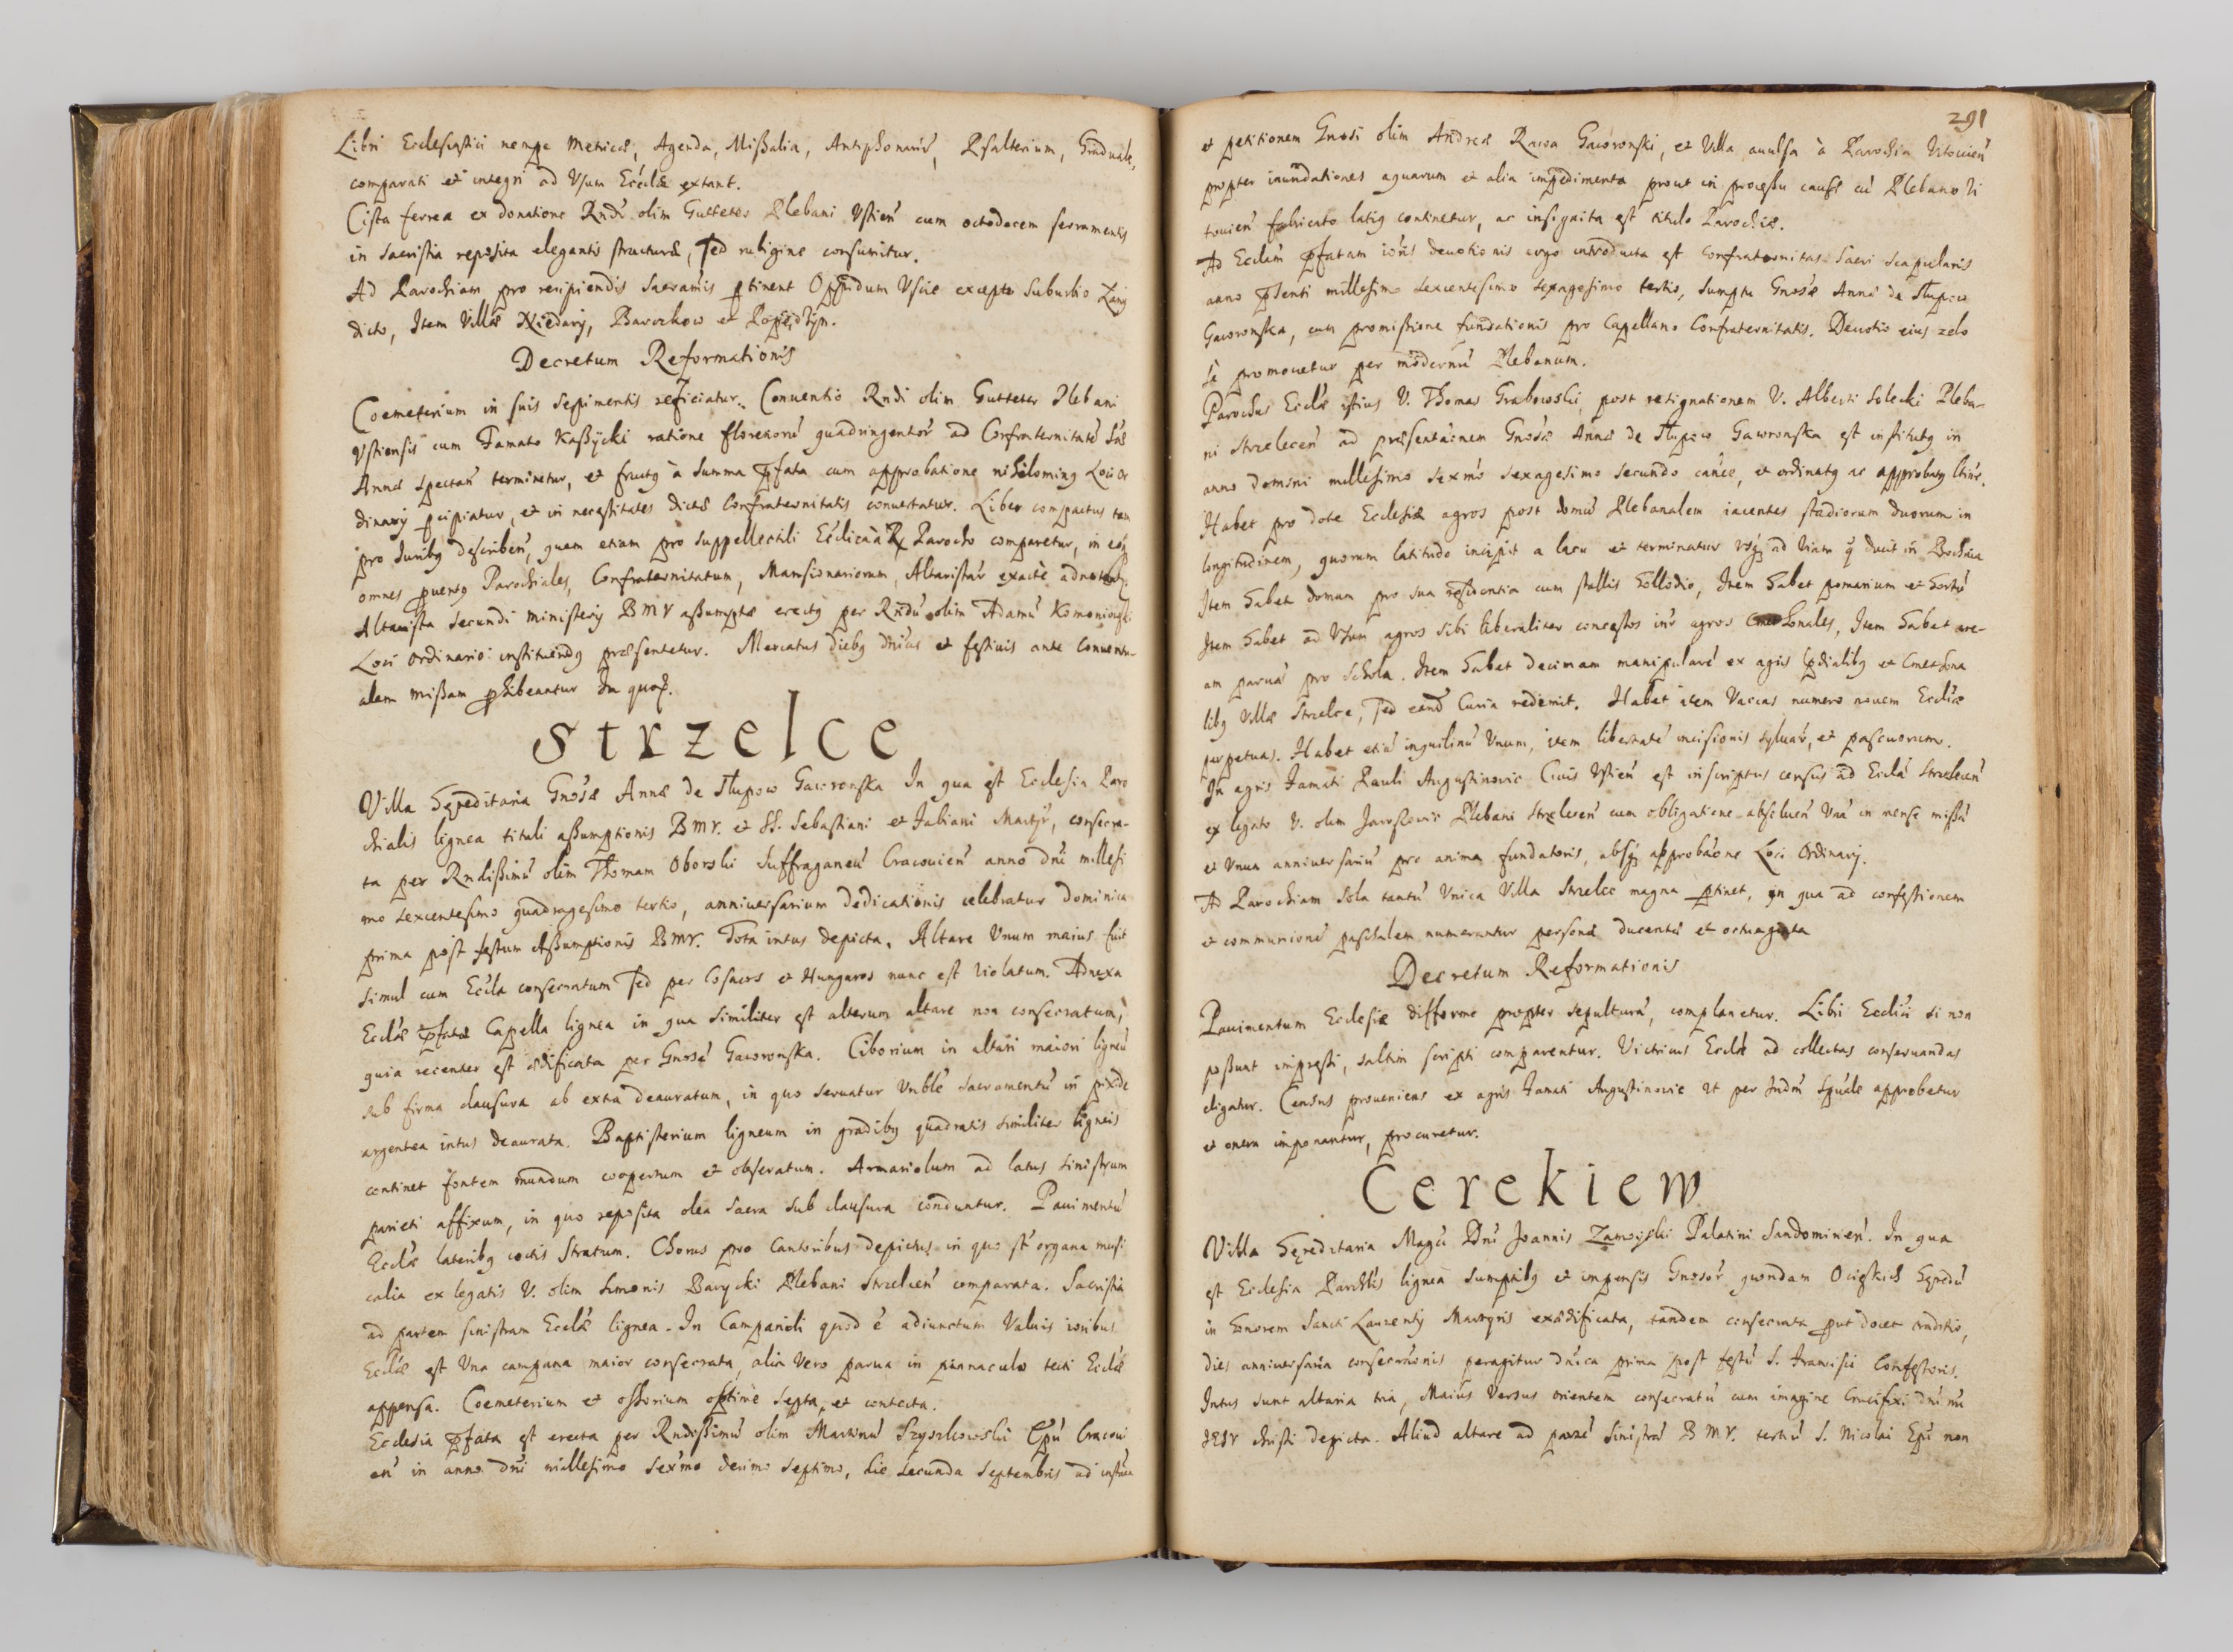 Libri Ecclesiastici nempe Metricæ, Agenda, Missalia, Antiphonariū, Psalterium, Graduale,
comparati et integri ad Vsum Ecclæ extant.
Cista ferrea ex donatione Rndi olim Gutteter Plebani Vstien cum octodecem ferramentis
in sacristia reposita elegantis structuræ, sed rubigine consumitur.
Ad Parochiam pro recipiendis Sacramis ptinent Oppidum Vscie excepto suburbio
dicto, Item Villæ Niedary, Barczkow et Popędzyn.
Decretum Reformationis
Coemeterium in suis sepimentis reficiatur. Conuentio Rndi olim Gutteter Plebani
Vstiensis cum Famato Kassycki ratione florenorū quadringentor ad Confraternitatē Stæ
Annæ spectan terminetur, et fructq à summa pfata cum approbatione nihilominq Loci Or
dinarij pcipiatur, et in necessitates dictæ Confraternitatis conuertatur. Liber compactus tam
pro Iuribq describen, quam etiam pro suppellectili Ecclica à R Parocho comparetur, in eoq
omnes puentq Parochiales, Confraternitatum, Mansionariorum, Altaristar exactè
Altarista secundi ministerij BMV assumptæ erectq per Rndū olim Adamū
Loci Ordinario instituendq præsentetur. Mercatus diebq dnicis et festiuis ante Conuentu-
alem missam phibeantur In quoq.
Strzelce
Villa hęreditaria Gnosæ Annæ de Słupow Gaworonska In qua est Ecclesia Paro
chialis lignea tituli assumptionis BMV. et SS. Sebastiani et Fabiani Martyr, consecra-
ta per Rndissimū olim Thomam Oborski Suffraganeū Cracouien anno dni millesi
mo sexcentesimo quadragesimo tertio, anniuersarium dedicationis celebratur Dominica
prima post festum Assumptionis BMV. Tota intus depicta. Altare Vnum maius fuit
simul cum Eccla consecratum sed per Cosacos et Hungaros nunc est violatum. Adnexa
Ecclæ pfatæ Capella lignea in qua similiter est alterum altare non consecratum,
quia recenter est ædificata per Gnosā Gaworonska. Ciborium in altari maiori ligneū
sub firma clausura ab extra deauratum, in quo seruatur Vnble Sacramentū in pixide
argentea intus deaurata. Baptisterium ligneum in gradibq quadratis similiter ligneis
continet fontem mundum coopertum et obseratum. Armariolum ad latus sinistrum
parieti affixum, in quo reposita olea sacra sub clausura conduntur. Pauimentū
Ecclæ lateribq coctis stratum. Chorus pro Cantoribus depictus in quo st organa musi
calia ex legatis V. olim Simonis Barycki Plebani Strzelcen comparata. Sacristia
ad partem sinistram Ecclæ lignea. In Campanili quod é adiunctum Valuis ioribus
Ecclæ est Vna campana maior consecrata, alia Vero parua in pinnaculo tecti Ecclæ
appensa. Coemeterium et ossorium optimè septa, et contecta.
Ecclesia pfata est erecta per Rndissimū olim Martinū Szyszkowski Epū Cracoui
en in anno dni millesimo sexmo decimo septimo, die secunda Septembris ad instan
291
et petitionem Gnosi olim Andreæ Rawa Gaworonski, et Villa auulsa à Parochia Vitouien
propter inundationes aquarum et alia impedimenta prout in processu causæ cū Plebano Vi
touien fabricato latiq continetur, ac insignita est titulo Parochiæ.
Ad Ecclam pfatam ioris deuotionis ergo introducta est Confraternitas Sacri Scapularis
anno psenti millesimo sexcentesimo sexagesimo tertio, sumptu Gnosæ Annæ de Słupow
Gaworonska, cum promissione fundationis pro Capellano Confraternitatis. Deuotio eius zelo
se promouetur per modernū Plebanum.
Parochus Ecclæ istius V. Thomas Grabowski, post resignationem V. Alberti Solecki Pleba-
ni Strzelcen ad præsentaonem Gnosæ Annæ de Słupow Gaworonska est institutq in
anno domini millesimo sexmo sexagesimo secundo canice, et ordinatq ac approbatq
Habet pro dote Ecclesiæ agros post domū Plebanalem iacentes stadiorum duorum in
longitudinem, quorum latitudo incipit a lacu et terminatur vsq ad Viam q ducit in Bochnia
Item habet domum pro sua residentia cum stallis hollodio, Item habet pomarium et hortū
Item habet ad Vsum agros sibi liberaliter concessos inr agros Cmethonales, Item habet are-
am paruā pro Schola. Item habet decimam manipularē ex agris pdialibq et Cmethona
libq Villæ Strzelce, sed eand Curia redemit. Habet item Vaccas numero nouem Ecclæ
perpetuas. Habet etiā inquilinū Vnum, item libertatē incisionis syluar, et pascuorum.
In agris Famati Pauli Augustinowic Ciuis Vstien est inscriptus census ad Ecclā Strzelcen
ex legato V. olim Plebani Strzelcen cum obligatione absoluen Vnā in mense missā
et Vnum anniuersariū pro anima fundatoris, absq approbaone Loci Ordinarij.
Ad Parochiam sola tantū Vnica Villa Strzelce magna ptinet, in qua ad confessionem
et communionē paschalem numerantur personæ ducentæ et octuaginta
Decretum Reformationis
Pauimentum Ecclesiæ difforme propter sepulturā, complanetur. Libri Ecclici si non
possunt impressi, saltim scripti comparentur. Vitricus Ecclæ ad collectas conseruandas
eligatur. Census proueniens ex agris Famati Augustinowic vt per Iudm Spuale approbetur
et onera imponantur, procuretur.
Cerekiew
Villa hęreditaria Magci Dni Joannis Zamoyski Palatini Sandomirien. In qua
est Ecclesia Parchlis lignea sumptibq et impensis Gnosor quondam Ocieskich hęredū
in honorem Sancti Laurentij Martyris exædificata, tandem consecrata put docet
dies anniuersaria consecraonis peragitur dnica prima post festū S. Francisci Confessoris.
Intus sunt altaria tria, Maius versus orientem consecratū cum imagine Crucifixi dni nri
IESV christi depicta. Aliud altare ad partē sinistrā BMV. tertiū S. Nicolai Epi non